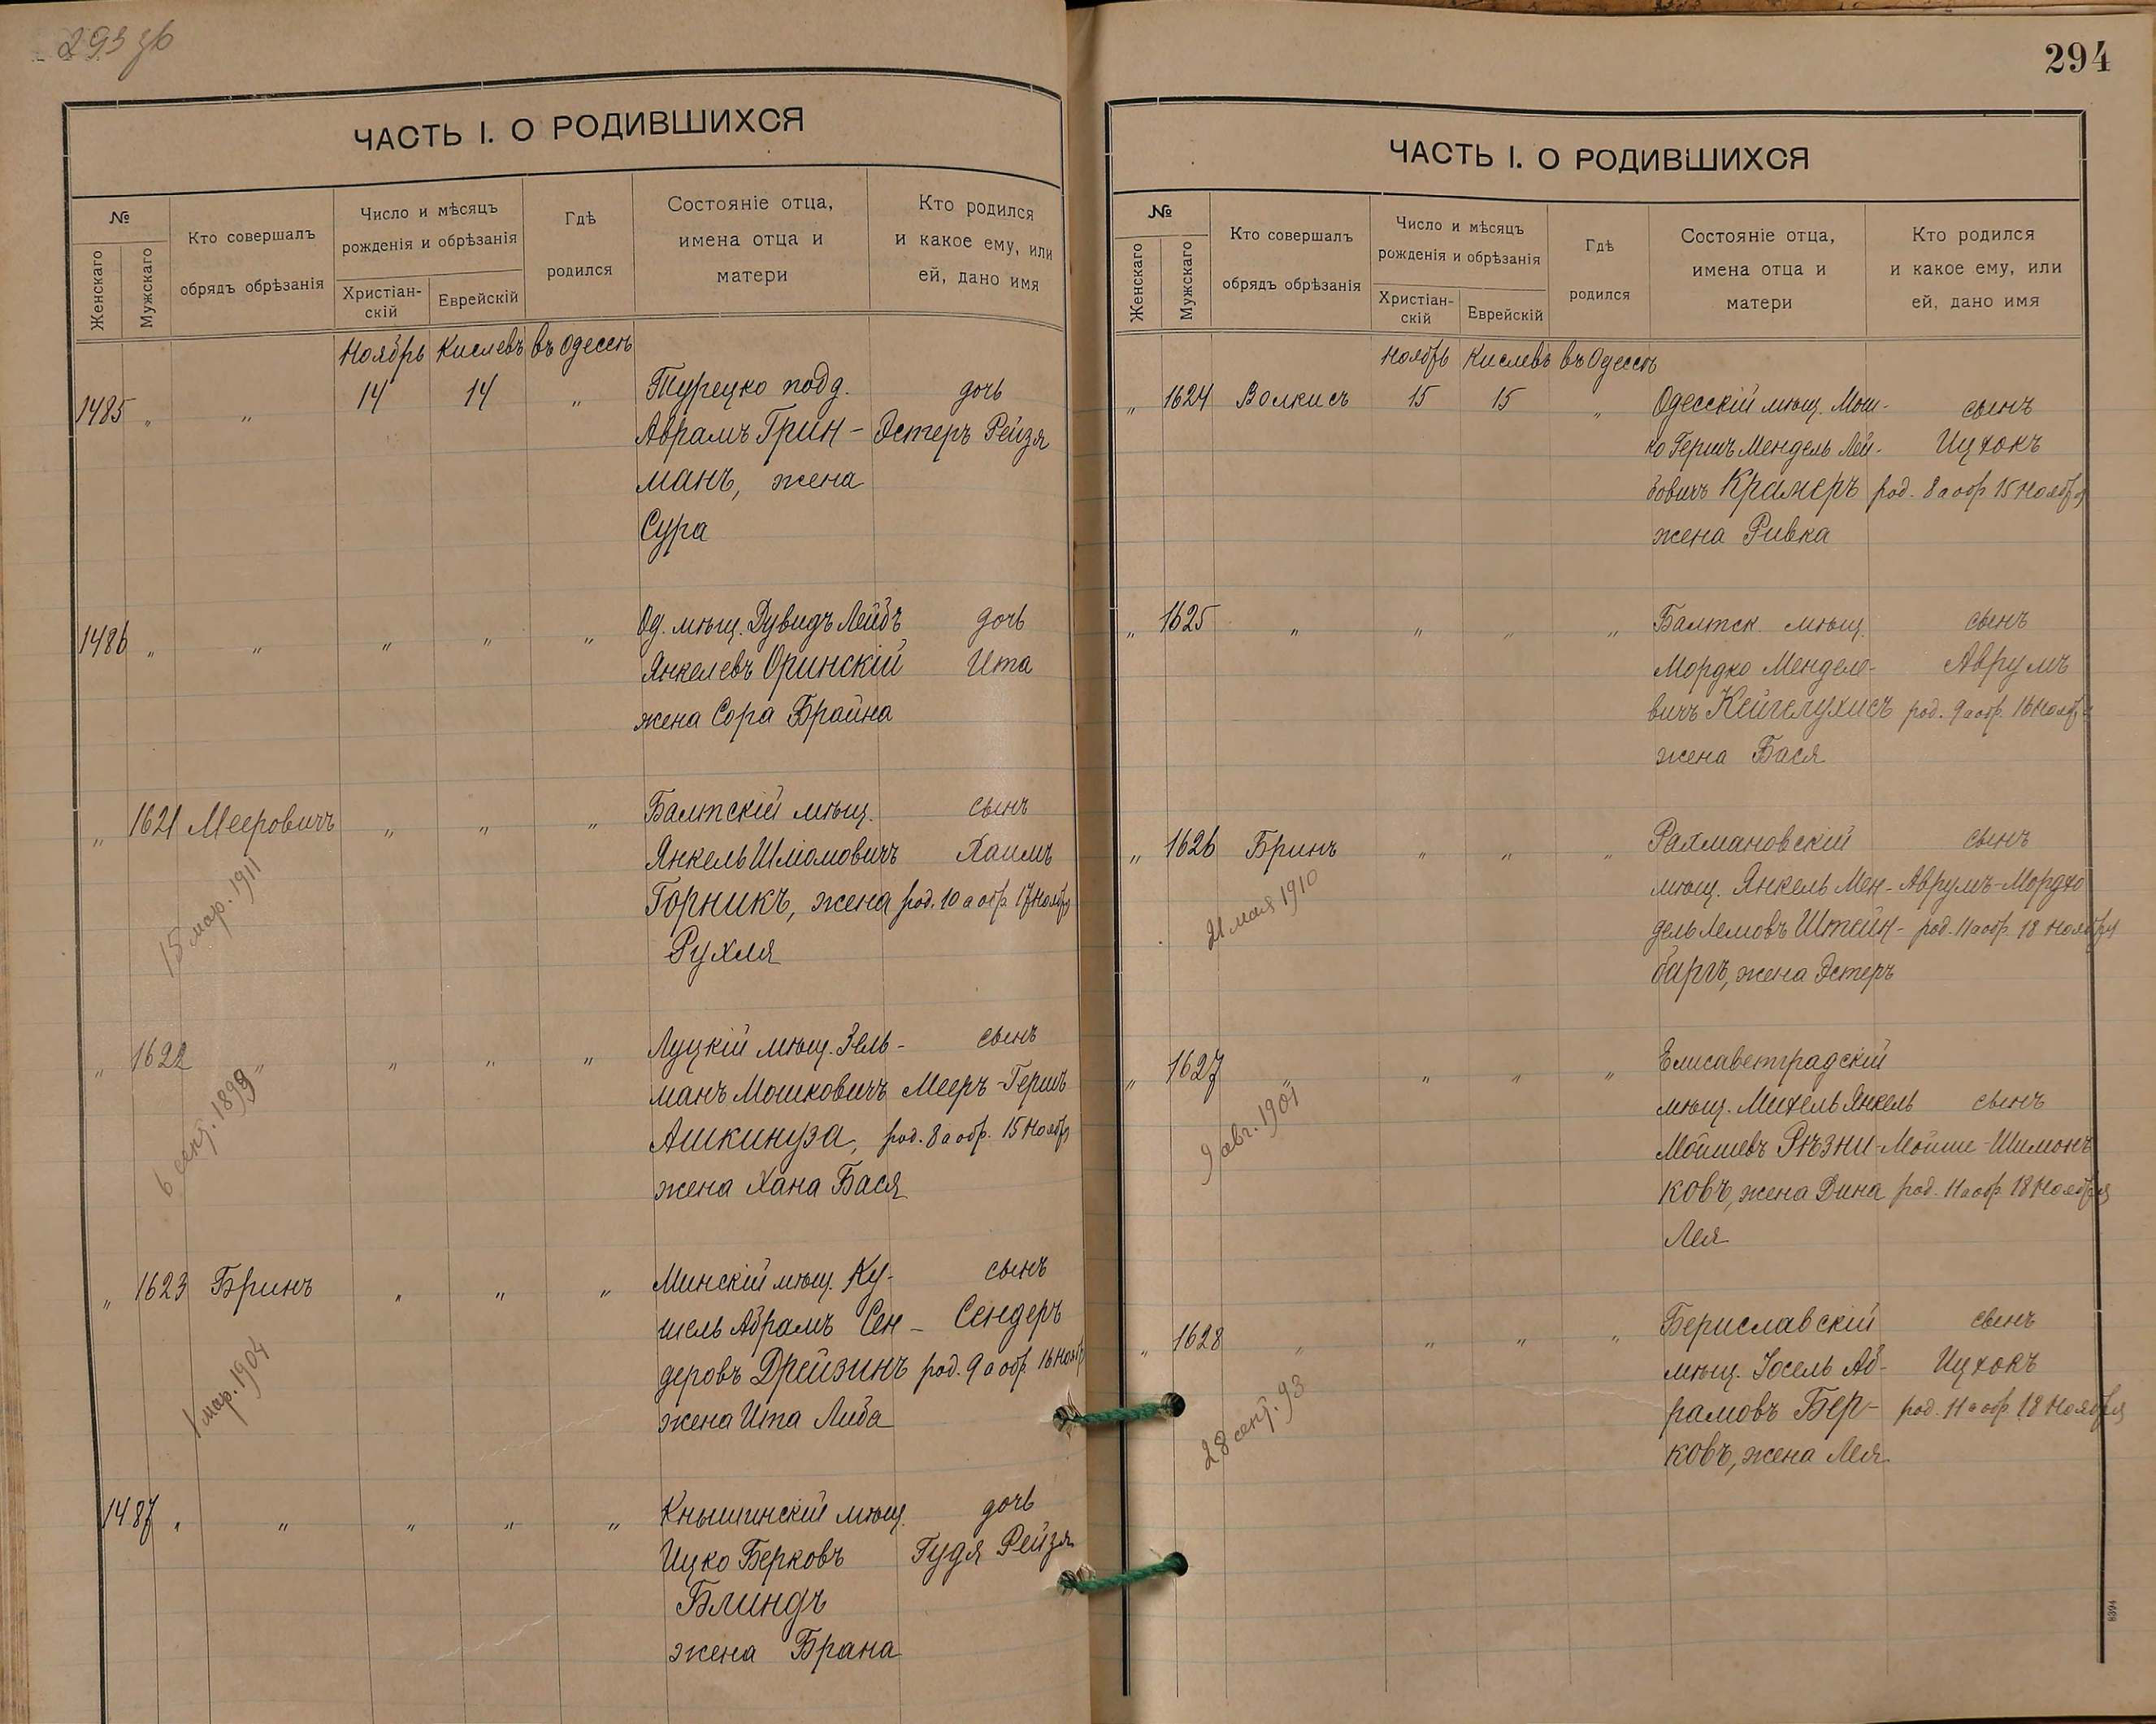 293 зв
ЧАСТЬ I. О РОДИВШИХСЯ
№
Женскаго
Мужскаго
Кто совершалъ
обрядъ обрѣзанія
Число и мѣсяцъ
рожденія и обрѣзанія
Христіан-
скій
Еврейскій
Гдѣ
родился
Состояніе отца,
имена отца и
матери
Кто родился
и какое ему, или
ей, дано имя
Ноябрь Кислевъ въ Одессѣ
1485 „ „ 14 14 „ Турецко подд. дочь
Аврамъ Грин- Эстеръ Рейзя
манъ, жена
Сура
1486 „ „ „ „ „ Од. мѣщ. Дувидъ Лейбъ дочь
Янкелевъ Оринскій, Ита
жена Сора Брайна
„ 1621 Мееровичъ „ „ „ Балтскій мѣщ. сынъ
Янкель Шліомовичъ Хаимъ
Горникъ, жена род. 10 а обр. 17 Ноябр
Рухля
15 мар. 1911
„ 1622 „ „ „ „ Луцкій мѣщ. Зель- сынъ
манъ Мошковичъ Мееръ-Гершъ
Ашкинуза, род. 8 а обр. 15 Ноябр
жена Хана Бася
6 сент. 1899
„ 1623 Бринъ „ „ „ Минскій мѣщ. Ку- сынъ
шель Абрамъ Сен- Сендеръ
деровъ Дрейзинъ род. 9 а обр. 16 Нояб
жена Ита Либа
1 мар. 1904
1487 „ „ „ „ „ Кнышинскій мѣщ. дочь
Ицко Берковъ Гудя Рейзя
Блиндъ
жена Брана
294
ЧАСТЬ I. О РОДИВШИХСЯ
№
Женскаго
Мужскаго
Кто совершалъ
обрядъ обрѣзанія
Число и мѣсяцъ
рожденія и обрѣзанія
Христіан-
скій
Еврейскій
Гдѣ
родился
Состояніе отца,
имена отца и
матери
Кто родился
и какое ему, или
ей, дано имя
Ноябрь Кислевъ въ Одессѣ
„ 1624 Волкисъ 15 15 „ Одесскій мѣщ. Мош- сынъ
ко Гершъ Мендель Лей- Ицхокъ
бовичъ Крамеръ род. 8 а обр. 15 Ноября
жена Ривка
„ 1625 „ „ „ „ Балтск. мѣщ. сынъ
Мордко Менделе- Аврумъ
вичъ Кейгелухисъ род. 9 а обр. 16 Ноябр
жена Бася
„ 1626 Бринъ „ „ „ Рахмановскій сынъ
мѣщ. Янкель Мен- Аврумъ-Мордко
дель Лемовъ Штейн- род. 11 а обр. 18 Ноября
баргъ, жена Эстеръ
21 мая 1910
„ 1627 „ „ „ „ Елисаветградскій
мѣщ. Михель Янкель сынъ
Мойшевъ Рѣзни- Мойше-Шимонъ
ковъ, жена Дина род. 11 а обр. 18 Ноября
Лея
9 авг. 1901
„ 1628 „ „ „ „ Бериславскій сынъ
мѣщ. Іосель Аб- Ицхокъ
рамовъ Бер- род. 11 а обр. 18 Ноября
ковъ, жена Лея
28 сент. 93
8394